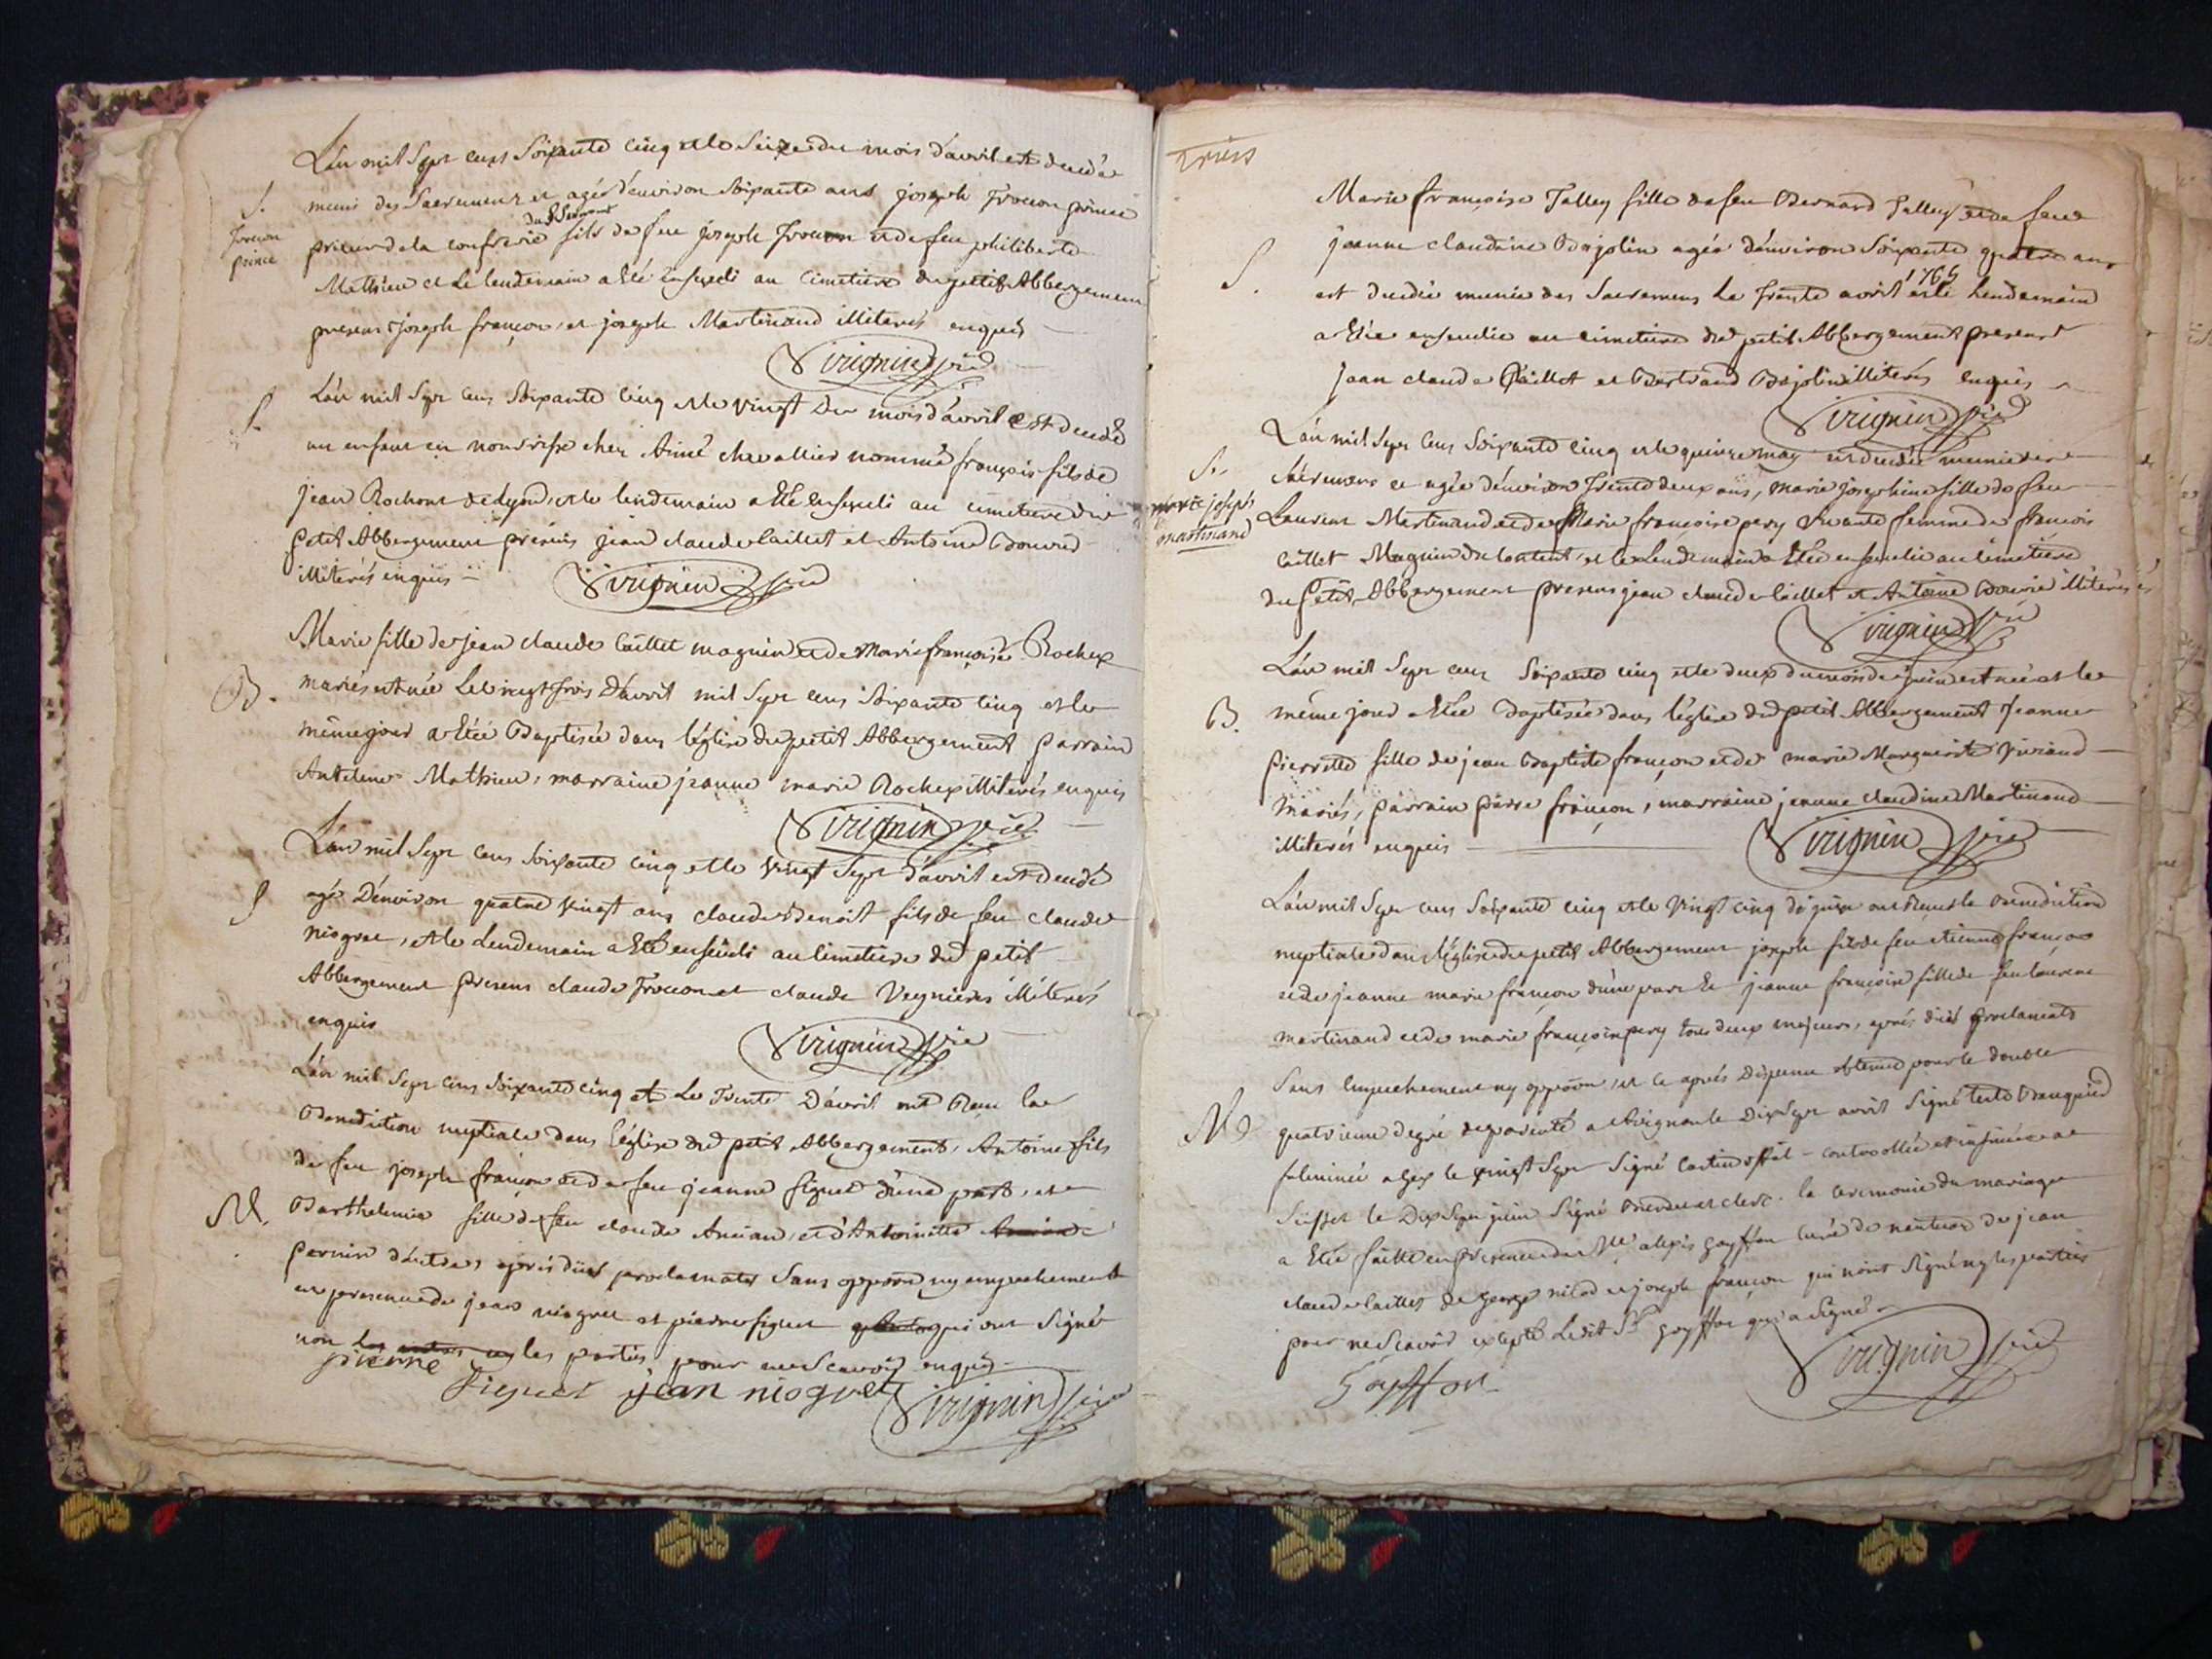 L'an mil sept cens soixante cinq et le seize du mois d'avril est decedé
S. munis des sacremens et agé d'environ soixante ans joseph Troccon prince
Troccon
prince
du St Sacrement
prieur de la confrerie fils de feu joseph Troccon et de feu philiberte
Mathieu et le lendemain a eté enseveli au cimetiere du petit Abbergement
presens joseph françon, et joseph Martinand illiterés enquis
Virignin vic
L'an mil sept cens soixante cinq et le vingt du mois d'avril est decedé
S. un enfant en nourrisse chez Aimé chevallier nommé françois fils de
jean Rochont de Lyon, et le lendemain a eté enseveli au cimetiere du
petit Abbergement présens jean claude Caillet et Antoine Bouvié
illiterés enquis
Virignin vic
Marie fille de jean claude Caillet magnin et de Marie françoise Rochex
B. mariés est née le vingt trois d'avril mil sept cens soixante cinq et le
même jour a etée Baptisée dans l'église du petit Abbergement parrain
Antelme Mathieu, marraine jeanne marie Rochex illiterés enquis
Virignin vic
L'an mil sept cens soixante cinq et le vingt sept d'avril est decedé
S agé d'environ quatre vingt ans claude Benoit fils de feu claude
niogret, et le lendemain a eté enséveli au cimetiere du petit
Abbergement presens claude Troccon et claude Veynieres illiterés
enquis
Virignin vic
L'an mil sept cens soixante cinq et le Trente d'avril ont Reçu la
Benediction nuptiale dans l'église du petit Abbergement, Antoine fils
de feu joseph françon et de feu jeanne figuet d'une part, et
M. Barthelemie fille de feu claude Ancian, et d'Antoinette
Pernin d'autre, aprés düës proclamates sans opposon ny empechement
en presence de jean niogret et pierre figuet qui ont signé
non les parties pour ne sçavoir enquis
pierre figuet jean niogret Virignin vic
Marie françoise Talley fille de feu Bernard Talley et de feue
jeanne claudine Bajolin agée d'environ soixante quatre ans
1765
S. est decedée munie des sacremens le Trente avril et le lendemain
a étée ensevelie au cimetiere du petit Abbergement presens
jean claude Caillet et Bertrand Bajolin illiterés enquis
Virignin vic
L'an mil sept cens soixante cinq et le quinze may est decedée munie des
S. sacremens et agée d'environ trente deux ans, marie josephine fille de feu
marie joseph
martinand
Laurent Martinand et de Marie françoise pery vivante femme de françois
Caillet Magnin du Content, et le lendemain a étée ensevelie au cimetiere
du petit Abbergement presens jean claude Caillet et Antoine Bouvié illiterés
Virignin vic
L'an mil sept cens soixante cinq et le deux du mois de juin est née et le
B. même jour a étée Baptisée dans l'église du petit Abbergement jeanne
pierrette fille de jean Baptiste françon et de marie Marguerite Vuviand
mariés, parrain pierre françon, marraine jeanne claudine Martinand
illiterés enquis
Virignin vic
L'an mil sept cens soixante cinq et le vingt cinq de juin ont Reçus la Benediction
nuptiale dans l'église du petit Abbergement joseph fils de feu etienne françon
et de jeanne marie françon d'une part et jeanne françoise fille de feu laurent
martinand et de marie françoise pery tous deux majeurs, aprés düës proclamates
sans empechement ny opposon, et ce aprés dispense obtenue pour le double
M quatrieme degré de parenté a Avignon le dix sept avril signé
fulminée a Gex le vingt sept signé controllée et insinuée
le dix sept juin signé la ceremonie du mariage
a eté faitte en presence de Mre alexis gayffon curé de nantuas de jean
claude Caillet de george nilod et joseph françon qui n'ont signé ny les parties
pour ne sçavoir excepté ledit Sr gayffon qui a signé
Gayffon
Virignin vic